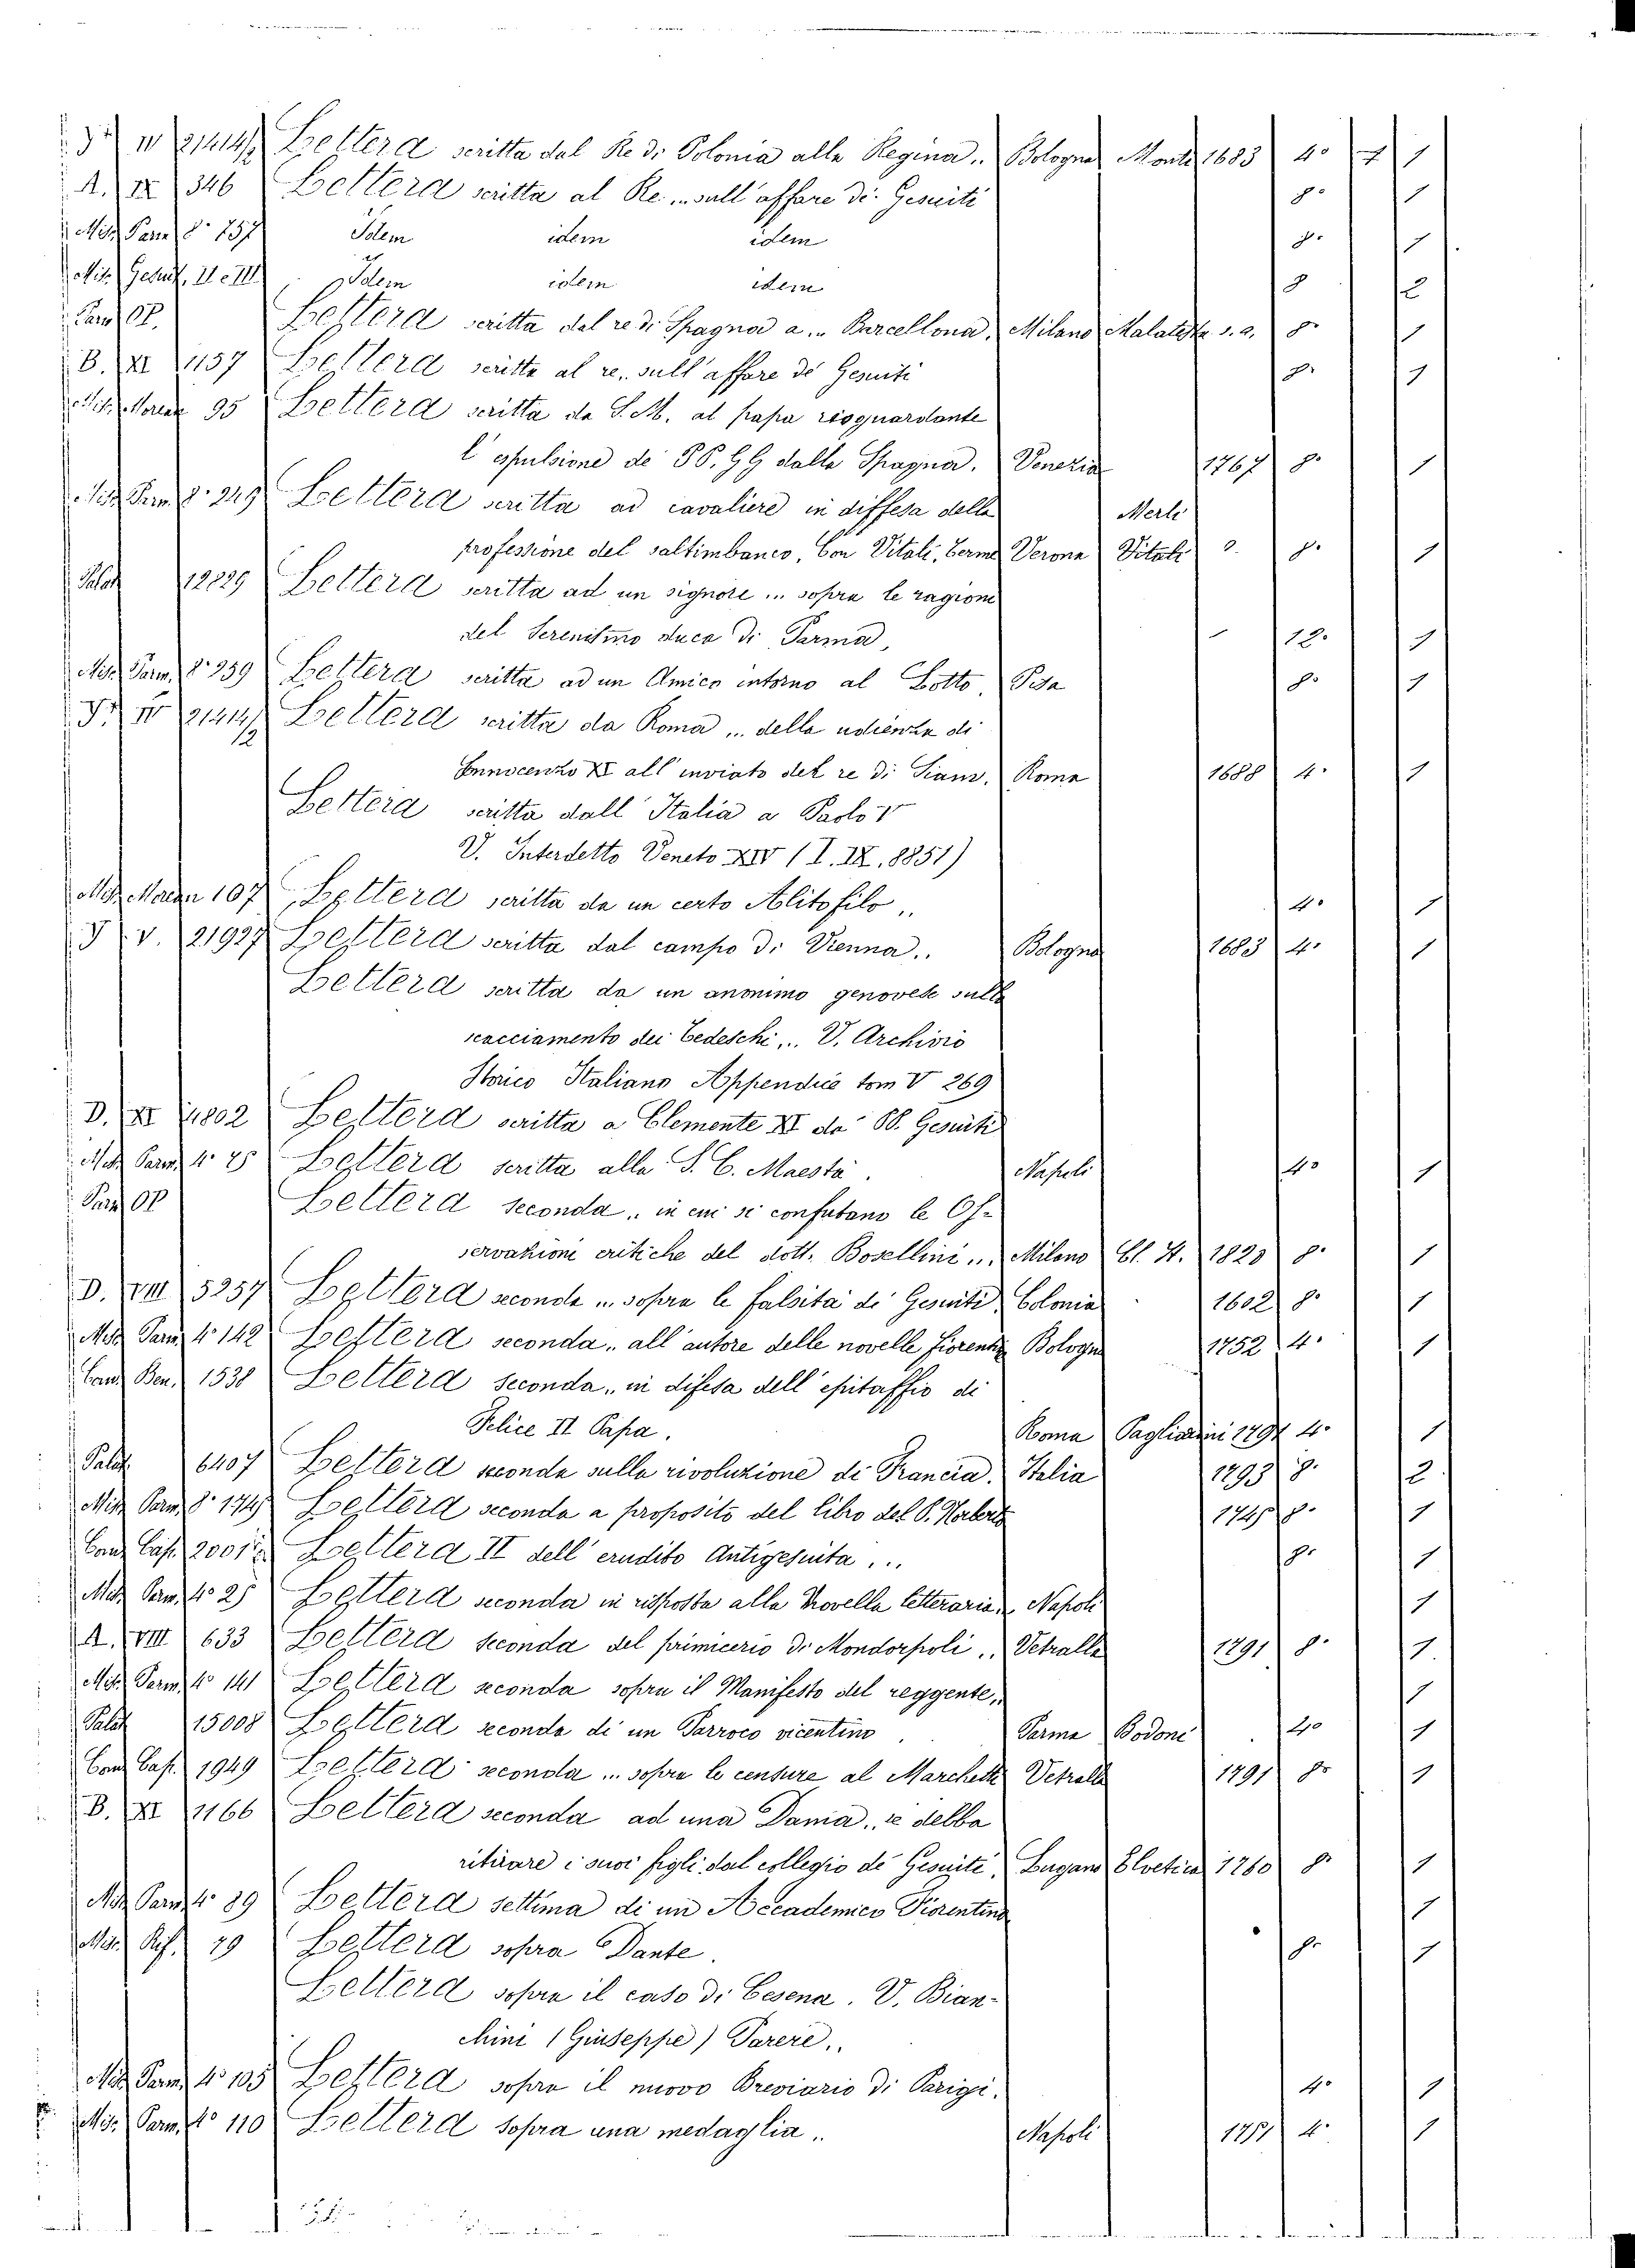 IV 21414/ Lettera scritta dal Re di Polonia alla Regina.. Bologna Monti 1683 4° 1
A. IX 346 Lettera scritta al Re... sull'affare de' Gesuiti 8° 1
Misc. Parm. 8° 757 Idem idem idem 8° 1
Misc. Gesuit. II e III Idem idem idem 8 2
Parm. OP. Lettera scritta dal re di Spagna a... Barcellona, Milano Malatesta s. a. 8° 1
B. XI 1157 Lettera scritta al re.. sull'affare de' Gesuiti 8° 1
Misc. 95 Lettera scritta da S. M. al papa risguardante
l'espulsione de' PP. GG dalla Spagna. Venezia 1767 8° 1
Misc. Parm. 8° 249 Lettera scritta ad cavaliere in diffesa della
professione del saltimbanco, Con Vitali, Verona Merli Vitali 8° 1
Palat 12829 Lettera scritta ad un signore... sopra le ragioni
del Serenissimo duca di Parma, 12° 1
Misc. Parm. 8° 239 Lettera scritta ad un Amico intorno al Lotto, Pisa 8° 1
IV 21414/12 Lettera scritta da Roma... della udienza di
Innocenzo XI all'inviato del re di Siam. Roma 1688 4° 1
Lettera scritta dall'Italia a Paolo V
V. Interdetto Veneto XIV (I. IX. 8851)
Misc. 107 Lettera scritta da un certo Alitofilo.. 4° 1
V 21927 Lettera scritta dal campo di Vienna.. Bologna 1683 4° 1
Lettera scritta da un anonimo genovese sullo
scacciamento dei Tedeschi... V. Archivio
Storico Italiano Appendice tom V 269
D. XI 4802 Lettera scritta a Clemente XI da' PP. Gesuiti
Misc. Parm. 4° 25 Lettera scritta alla S. C. Maestà. Napoli 4° 1
Parm OP Lettera seconda.. in cui si confutano le Os-
servazioni critiche del dott. Bosellini... Milano Cl. It. 1823 8° 1
D. VIII 5257 Lettera seconda... sopra le falsità de' Gesuiti, Colonia 1602 8° 1
Misc. Parm. 4° 142 Lettera seconda.. all'autore delle novelle fiorentine Bologna 1752 4° 1
Cam. Ben. 1538 Lettera seconda.. in difesa dell'epitaffio di
Felice II Papa. Roma Pagliarini 1794 4° 1
Palat. 6407 Lettera seconda sulla rivoluzione di Francia. Italia 1793 8° 2
Misc. Parm. 8° 174 Lettera seconda a proposito del libro del P. Norberto 1745 8° 1
Cam. Cas. 2001 Lettera II dell'erudito Antigesuita... 8° 1
Misc. Parm. 4° 25 Lettera seconda in risposta alla Novella letteraria.. Napoli 1
A. VIII 633 Lettera seconda del primicerio di Mondorpoli.. Vetralla 1791 8° 1
Misc. Parm. 4° 141 Lettera seconda sopra il Manifesto del reggente.. 1
Palat 15008 Lettera seconda di un Parroco vicentino Parma Bodoni 4° 1
Cam. Cas. 1949 Lettera seconda... sopra le censure al Marchetti Vetralla 1791 8° 1
B. XI 1166 Lettera seconda ad una Dama.. se debba
ritirare i suoi figli dal collegio de' Gesuiti, Lugano Elvetica 1760 8° 1
Misc. Parm. 4° 89 Lettera settima di un Accademico Fiorentino 1
Misc. 29 Lettera sopra Dante. 8° 1
Lettera sopra il caso di Cesena. V. Bian-
chini (Giuseppe) Parere..
Misc. Parm. 4° 105 Lettera sopra il nuovo Breviario di Parigi. 4° 1
Misc. Parm. 4° 110 Lettera sopra una medaglia.. Napoli 4° 1